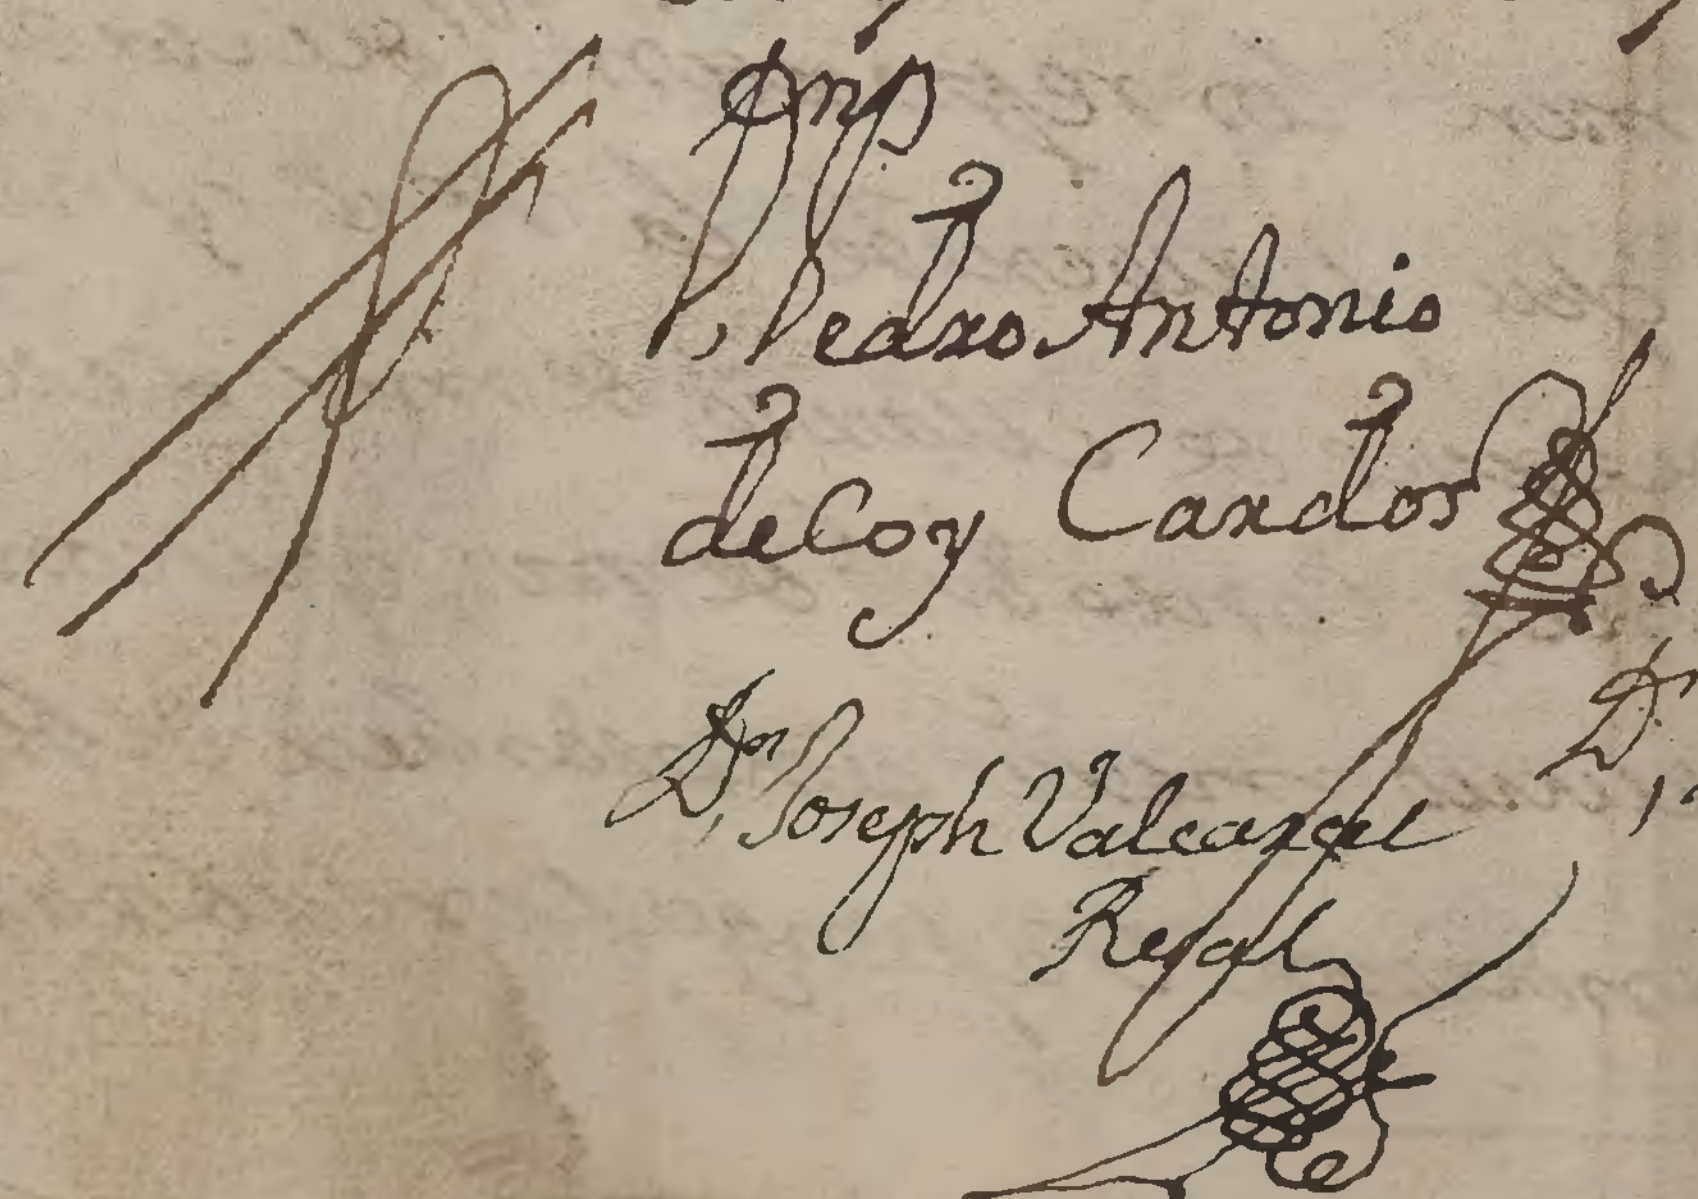 Pedro Antonio
de Coy Cardos
Dn Joseph Valcarzel
Regal
D